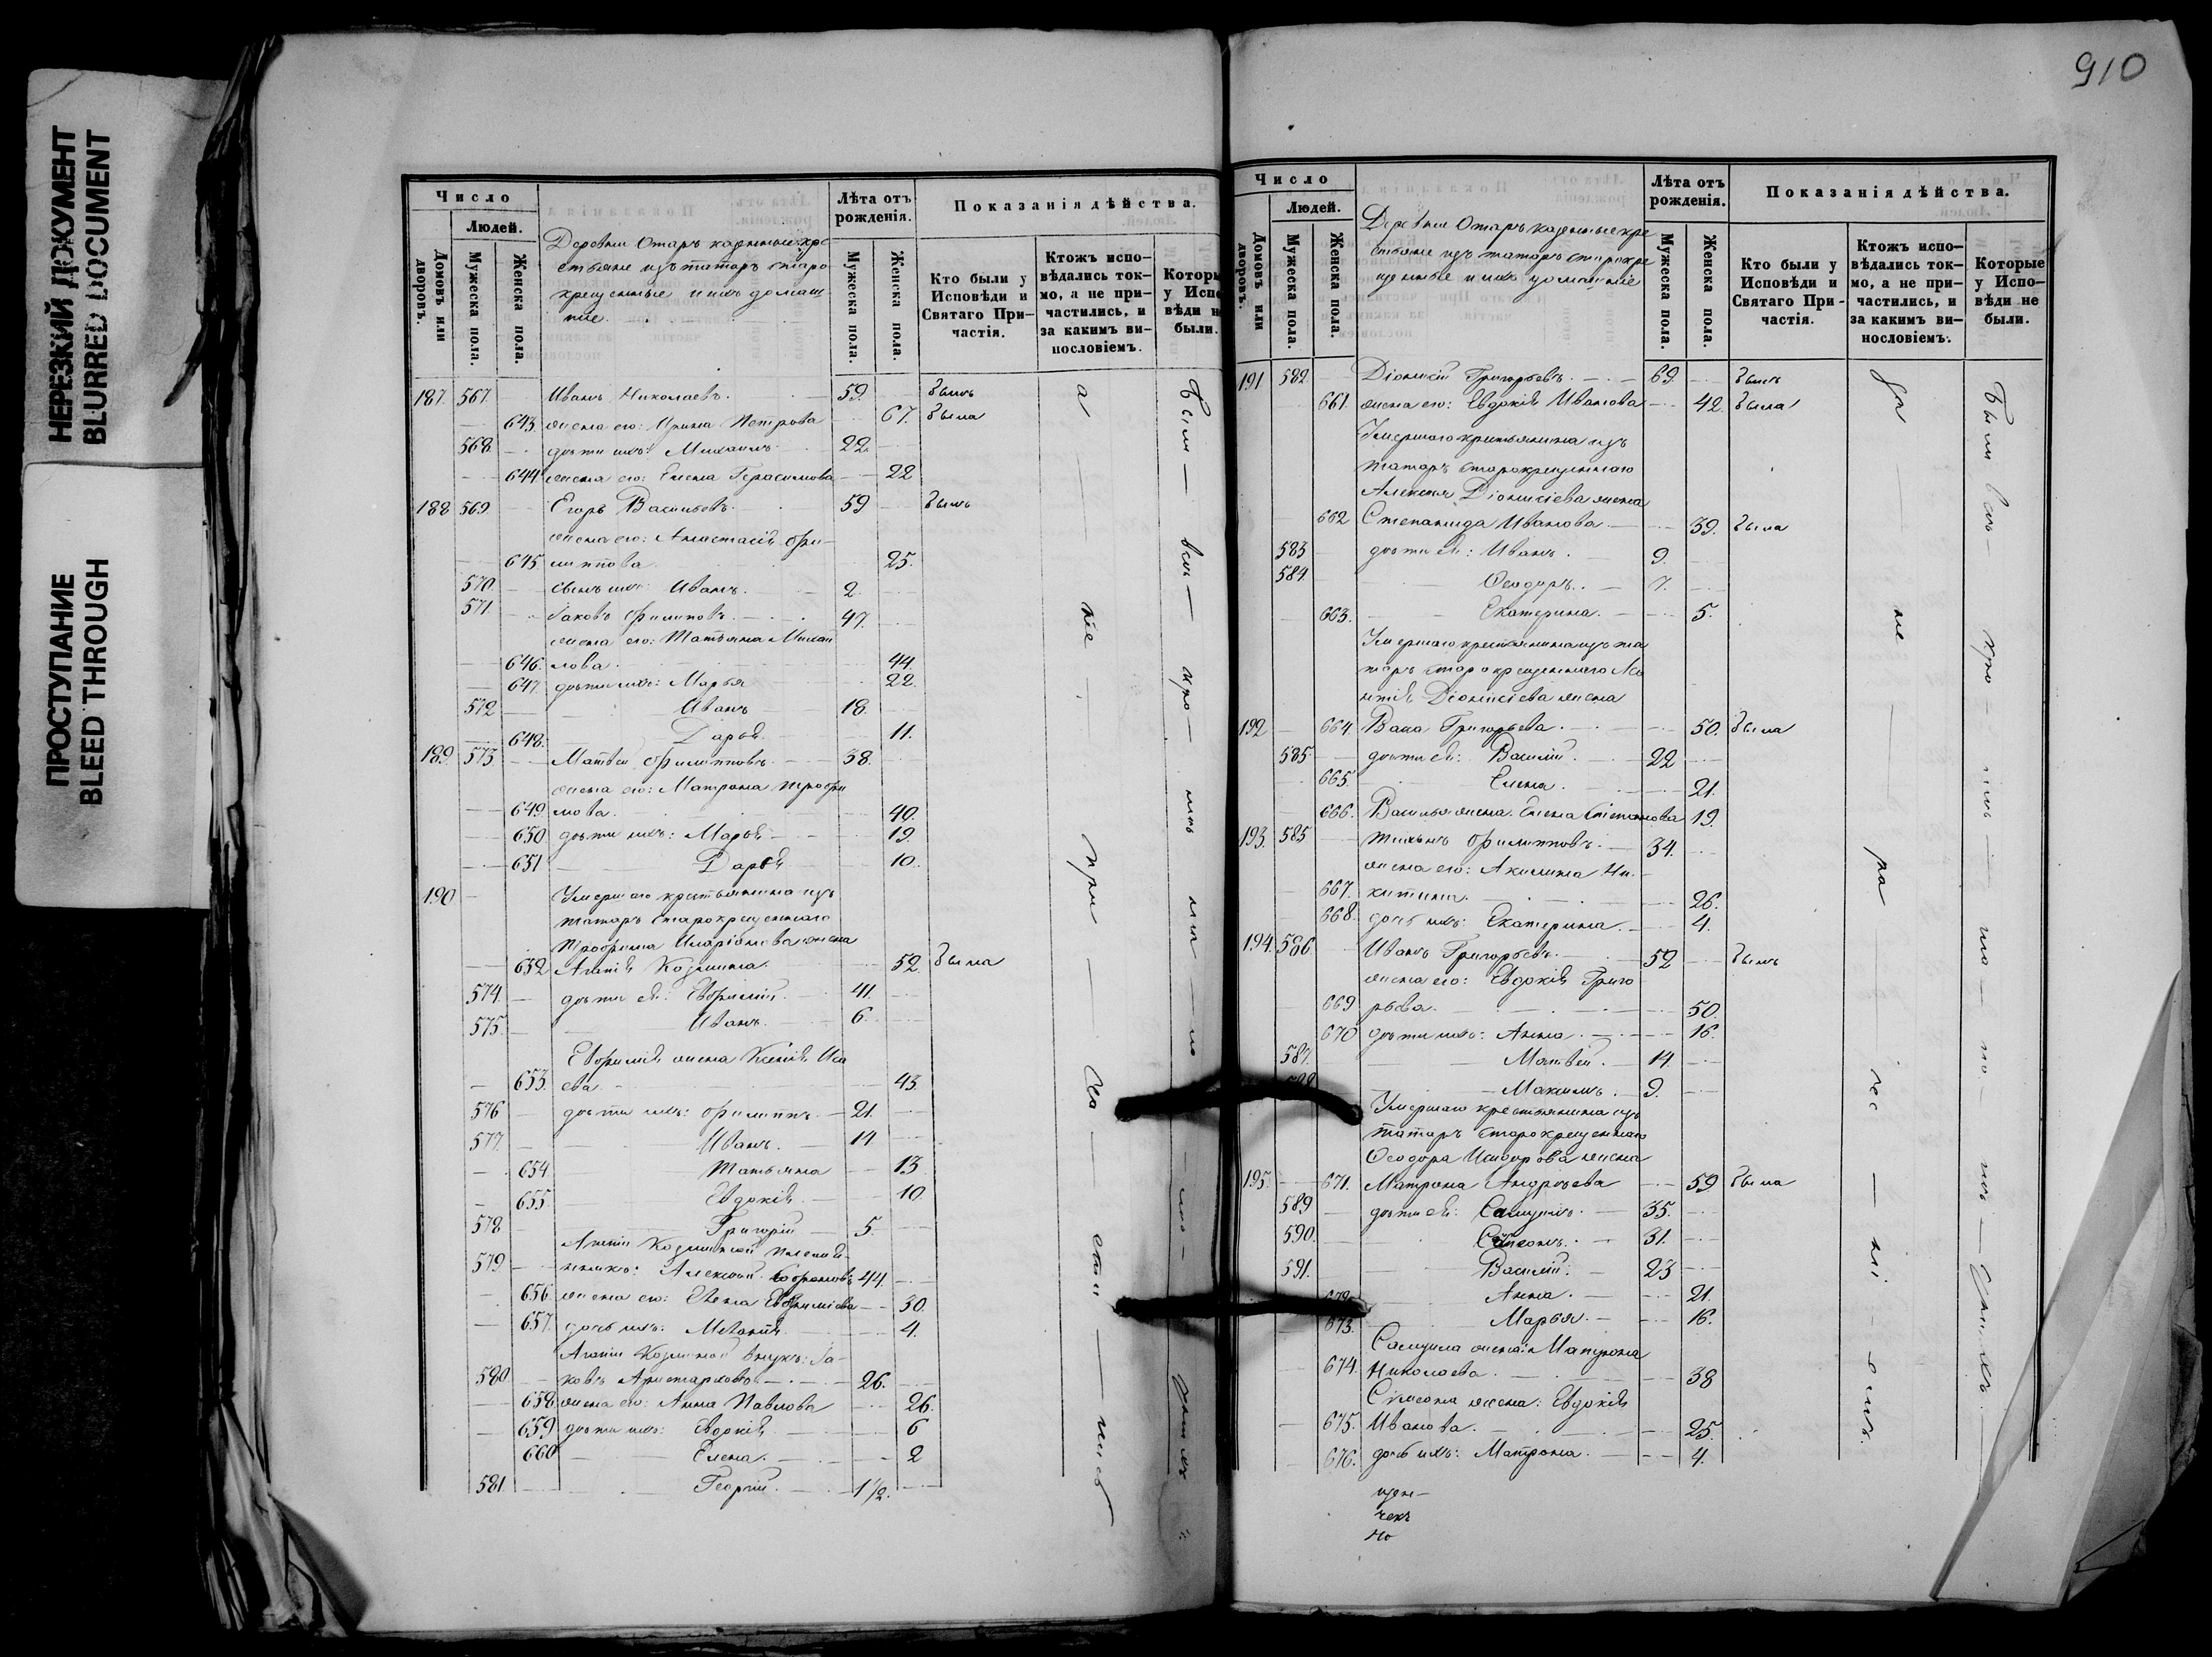 НЕРЕЗКИЙ ДОКУМЕНТ
BLURRED DOCUMENT
ПРОСТУПАНИЕ
BLEED THROUGH
910
Число
Людей.
Домовъ или дворовъ.
Мужеска пола.
Женска пола.
Деревни Отаръ казенные кре
стьяне изъ татаръ старо
крещенные и ихъ домаш
ніе.
Лѣта отъ рожденія.
Мужеска пола.
Женска пола.
Показанія дѣйства.
Кто были у Исповѣди и Святаго Причастія.
Ктожъ исповѣдались токмо, а не причастились, и за какимъ винословіемъ.
Которы у Испо вѣди н были.
187. 567. Иванъ Николаевъ. 59. былъ
643. жена его: Ирина Петрова 67. была
568. дѣти ихъ: Михаилъ 22.
644 жена его: Елена Герасимова 22
188 569. Егоръ Васильевъ. 59 былъ
жена его: Анастасія Фи-
645 липпова. 25.
570. сынъ ихъ: Иванъ. 2.
571. Іаковъ Филиповъ. 47.
жена его: Татьяна Михаи
646. лова. 44.
647. дѣти ихъ: Марья 22.
572 Иванъ 18.
648. Дарья. 11.
189. 573 Матвей Филипповъ. 38.
жена его: Матрона Трофи
649. мова. 40.
650 дѣти ихъ: Марья 19.
651 Дарья 10.
190 Умершаго крестьянина изъ
татаръ старокрещеннаго
Трофима Иларіонова жена
652 Агапія Козмина. 52. была
574. дѣти ея: Евфимій. 41.
575. Иванъ. 6.
Евфимія жена Ксенія Иса
653. ева. 43
576 дѣти ихъ: Филиппъ. 21.
577. Иванъ. 14
654. Татьяна 13
655. Евдокія. 10.
578 Григорій 5.
Агапіи Козминой племян-
579. никъ: Алексѣй 44.
656. жена его: Елена Евфиміева 30.
657. дочь ихъ: Меланія. 4.
Агапіи Козминой внукъ: Іа-
580 ковъ Аристарховъ 26.
658. жена его: Анна Павлова 26.
659 дѣти ихъ: Евдокія 6
660 Елена. 2
581. Георгій. 1 1/2.
а не при ча сти лись
Были всѣ
Число
Людей.
Домовъ или дворовъ.
Мужеска пола.
Женска пола.
Деревни Отаръ казенные кре
стьяне изъ татаръ старокре
щенные и ихъ домашніе
Лѣта отъ рожденія.
Мужеска пола.
Женска пола.
Показанія дѣйства.
Кто были у Исповѣди и Святаго Причастія.
Ктожъ исповѣдались токмо, а не причастились, и за какимъ винословіемъ.
Которые у Исповѣди не были.
191 582. Діонисій Григорьевъ. 69. былъ
661. жена его: Евдокія Иванова 42. была
Умершаго крестьянина изъ
татаръ старокрещеннаго
Алексѣя Діонисіева жена
662 Степанида Иванова 39. была
583 дѣти ея: Иванъ. 9.
584. Ѳеодоръ. 7.
663. Екатерина. 5.
Умершаго крестьянина изъ та
таръ старокрещеннаго
Діонисіева жена
192 664 Васа Григорьева. 50. была
585. дѣти ея: Василій. 22
665. Елена. 21.
666. Василья жена: Елена Степанова 19.
193. 585 Тихонъ Филипповъ. 34.
жена его: Акилина Ни-
667. китина. 26.
668. дочь ихъ: Екатерина. 4.
194. 586 Иванъ Григорьевъ. 52 былъ
жена его: Евдокія Григо
669 рьева. 50.
670 дѣти ихъ: Анна. 16.
587. Матвей. 14.
588 Максимъ. 9.
Умершаго крестьянина изъ
татаръ старокрещеннаго
Ѳеодора Исидорова жена
195. 671. Матрона Андреева 59 была
589 дѣти ея: Самуилъ. 35.
590. Симеонъ. 31.
591. Василій. 23
672. Анна. 21.
673. Марья. 16.
Самуила жена: Матрона
674. Николаева. 38
Симеона жена: Евдокія
675. Иванова. 25.
676. дочь ихъ: Матрона. 4.